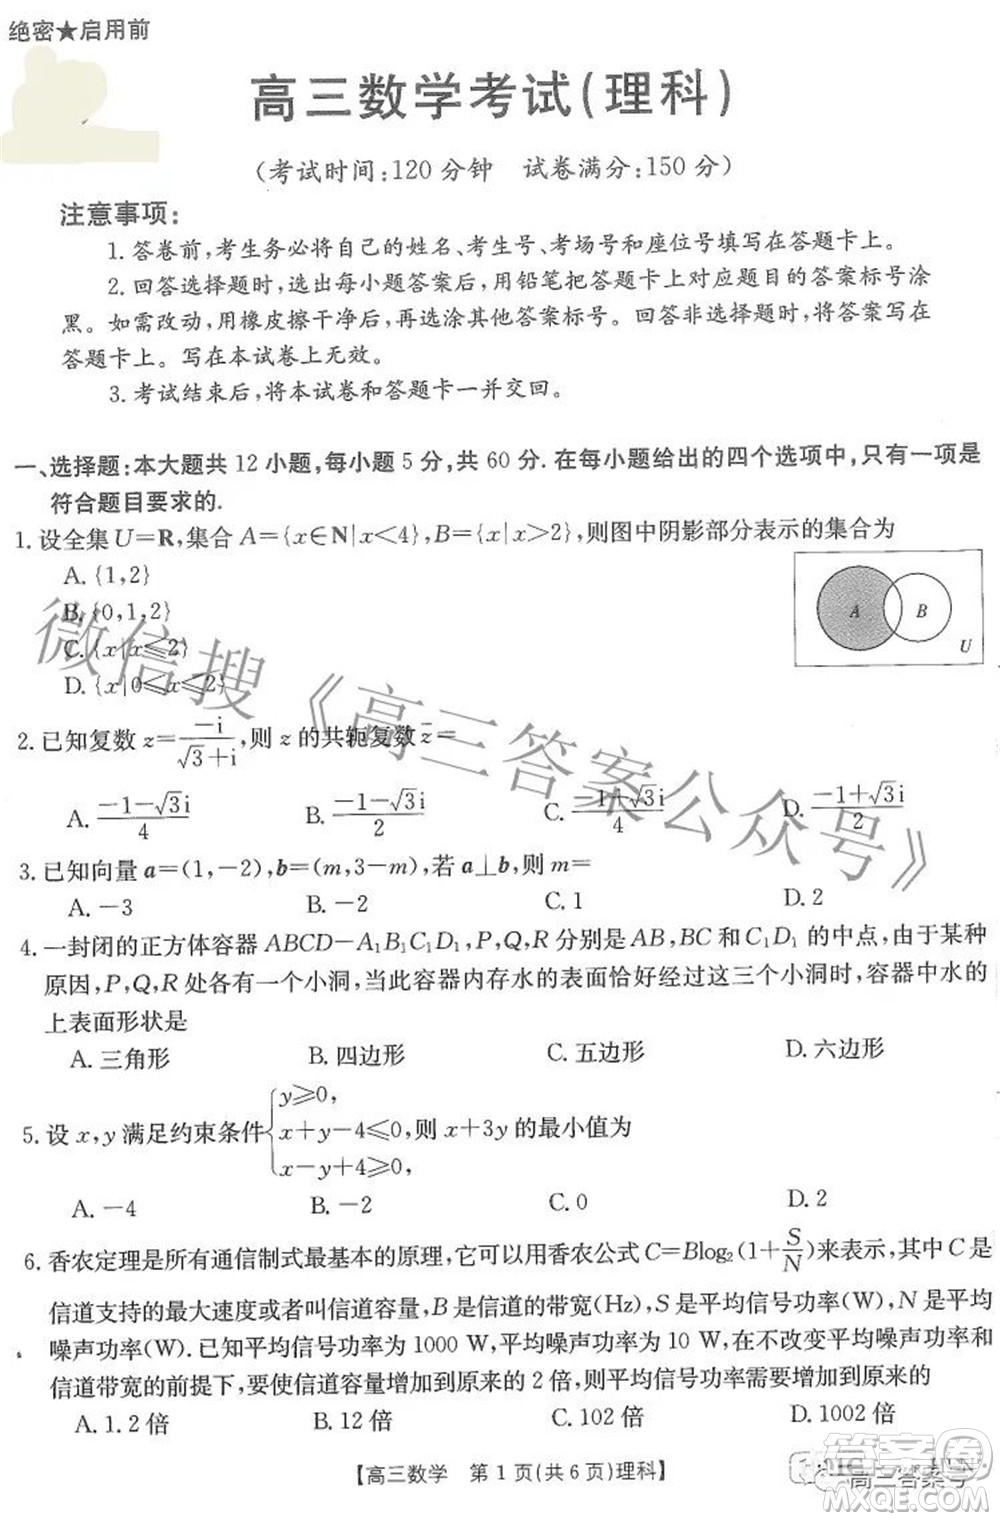 绝密★启用前
高三数学考试(理科)
(考试时间:120分钟 试卷满分:150分)
注意事项:
1.答卷前,考生务必将自己的姓名、考生号、考场号和座位号填写在答题卡上。
2.回答选择题时,选出每小题答案后,用铅笔把答题卡上对应题目的答案标号涂
黑。如需改动,用橡皮擦干净后,再选涂其他答案标号。回答非选择题时,将答案写在
答题卡上。写在本试卷上无效。
3.考试结束后,将本试卷和答题卡一并交回。
一、选择题:本大题共12小题,每小题5分,共60分.在每小题给出的四个选项中,只有一项是
符合题目要求的.
1.设全集U=R,集合A={x∈N|x<4},B={x|x>2},则图中阴影部分表示的集合为
A.{1,2}
B.{0,1,2}
C.{x|x≤2}
D.{x|0≤x≤2}
A B U
2.已知复数z=\frac{-i}{\sqrt{3}+i},则z的共轭复数\bar{z}=
A.\frac{-1-\sqrt{3}i}{4} B.\frac{-1-\sqrt{3}i}{2} C.\frac{-1+\sqrt{3}i}{4} D.\frac{-1+\sqrt{3}i}{2}
3.已知向量a=(1,-2),b=(m,3-m),若a⊥b,则m=
A.-3 B.-2 C.1 D.2
4.一封闭的正方体容器ABCD-A₁B₁C₁D₁,P,Q,R分别是AB,BC和C₁D₁的中点,由于某种
原因,P,Q,R处各有一个小洞,当此容器内存水的表面恰好经过这三个小洞时,容器中水的
上表面形状是
A.三角形 B.四边形 C.五边形 D.六边形
5.设x,y满足约束条件{y≥0, x+y-4≤0, x-y+4≥0, 则x+3y的最小值为
A.-4 B.-2 C.0 D.2
6.香农定理是所有通信制式最基本的原理,它可以用香农公式C=Blog₂(1+\frac{S}{N})来表示,其中C是
信道支持的最大速度或者叫信道容量,B是信道的带宽(Hz),S是平均信号功率(W),N是平均
噪声功率(W).已知平均信号功率为1000 W,平均噪声功率为10 W,在不改变平均噪声功率和
信道带宽的前提下,要使信道容量增加到原来的2倍,则平均信号功率需要增加到原来的
A.1.2倍 B.12倍 C.102倍 D.1002倍
【高三数学 第1页(共6页)理科】
微信搜《高三答案公众号》
高三答案号
答案圈
MXQE.COM